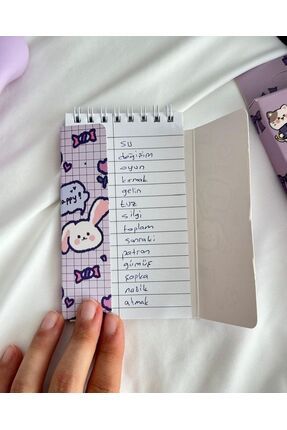 happy!
su
değişim
oyun
kırmak
gelin
tuz
silgi
toplam
sonraki
patron
gümüş
şapka
nadir
almak